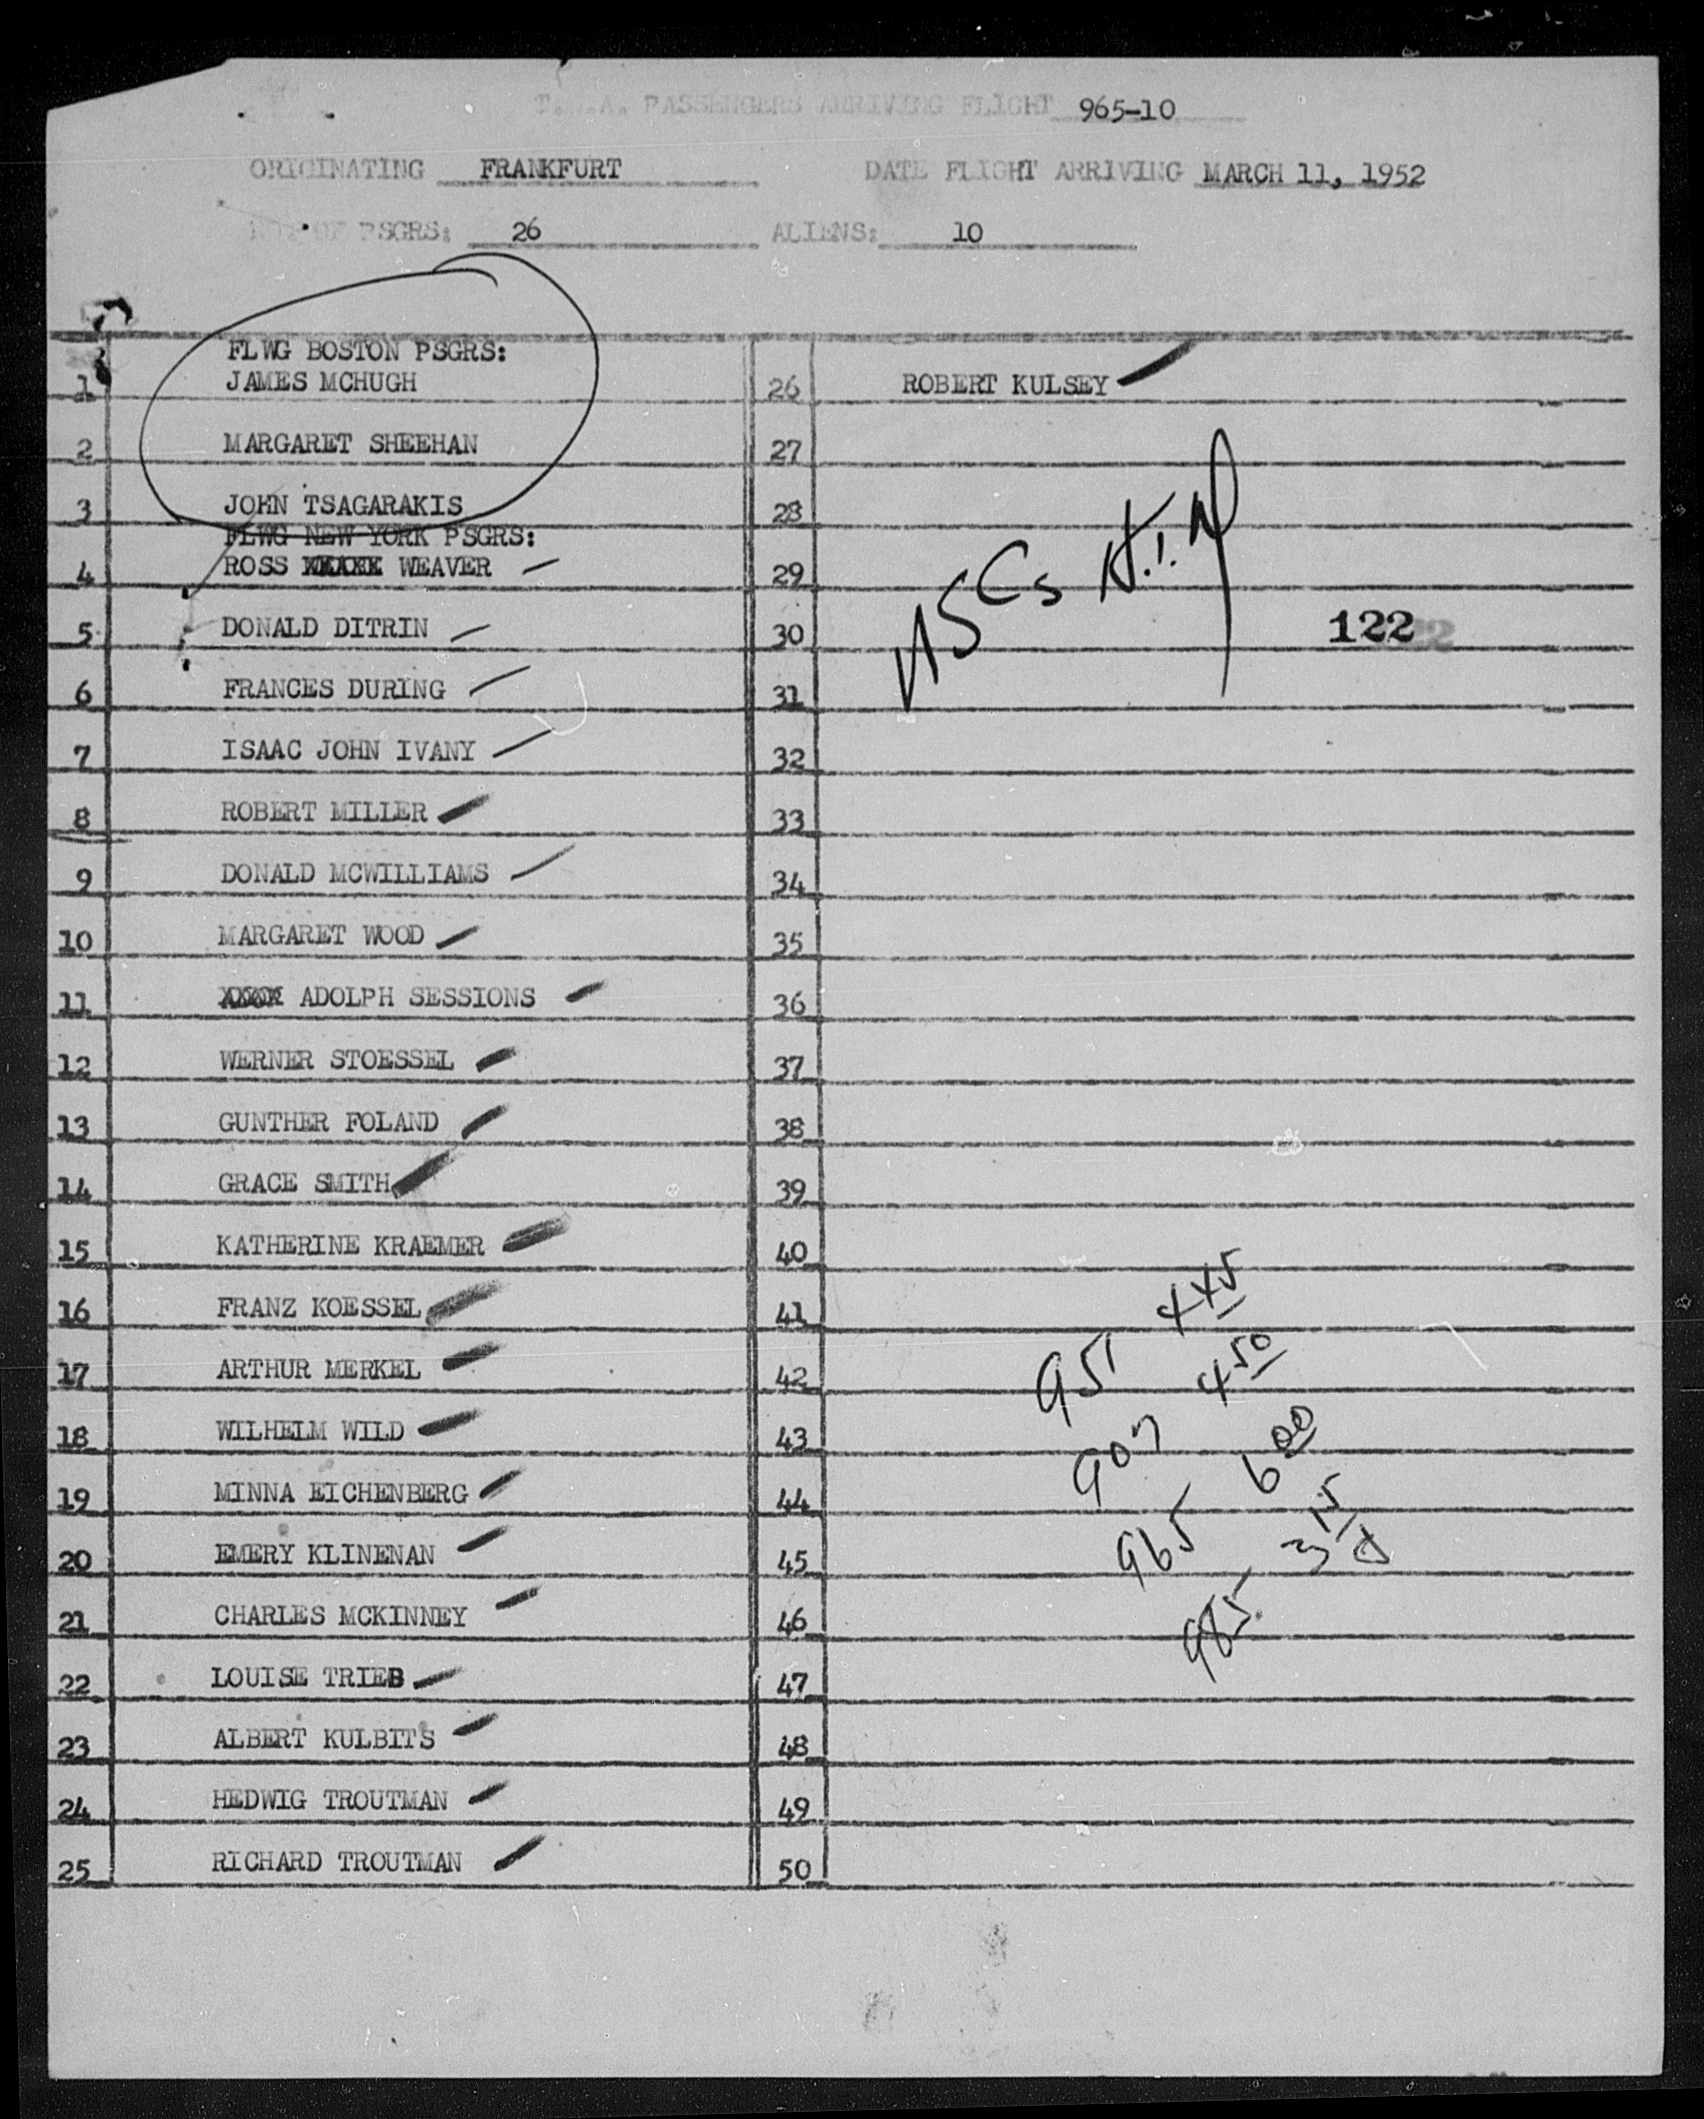 T.W.A. PASSENGERS ARRIVING FLIGHT 965-10
ORIGINATING FRANKFURT DATE FLIGHT ARRIVING MARCH 11, 1952
NO. OF PSGRS: 26 ALIENS: 10
FLWG BOSTON PSGRS:
1 JAMES MCHUGH
2 MARGARET SHEEHAN
3 JOHN TSAGARAKIS
FLWG NEW YORK PSGRS:
4 ROSS WEAVER
5 DONALD DITRIN
6 FRANCES DURING
7 ISAAC JOHN IVANY
8 ROBERT MILLER
9 DONALD MCWILLIAMS
10 MARGARET WOOD
11 ADOLPH SESSIONS
12 WERNER STOESSEL
13 GUNTHER FOLAND
14 GRACE SMITH
15 KATHERINE KRAEMER
16 FRANZ KOESSEL
17 ARTHUR MERKEL
18 WILHELM WILD
19 MINNA EICHENBERG
20 EMERY KLINENAN
21 CHARLES MCKINNEY
22 LOUISE TRIEB
23 ALBERT KULBITS
24 HEDWIG TROUTMAN
25 RICHARD TROUTMAN
26 ROBERT KULSEY
27
28
29
30
122
31
32
33
34
35
36
37
38
39
40
41
42
43
44
45
46
47
48
49
50
951 445
907 450
965 600
985 315